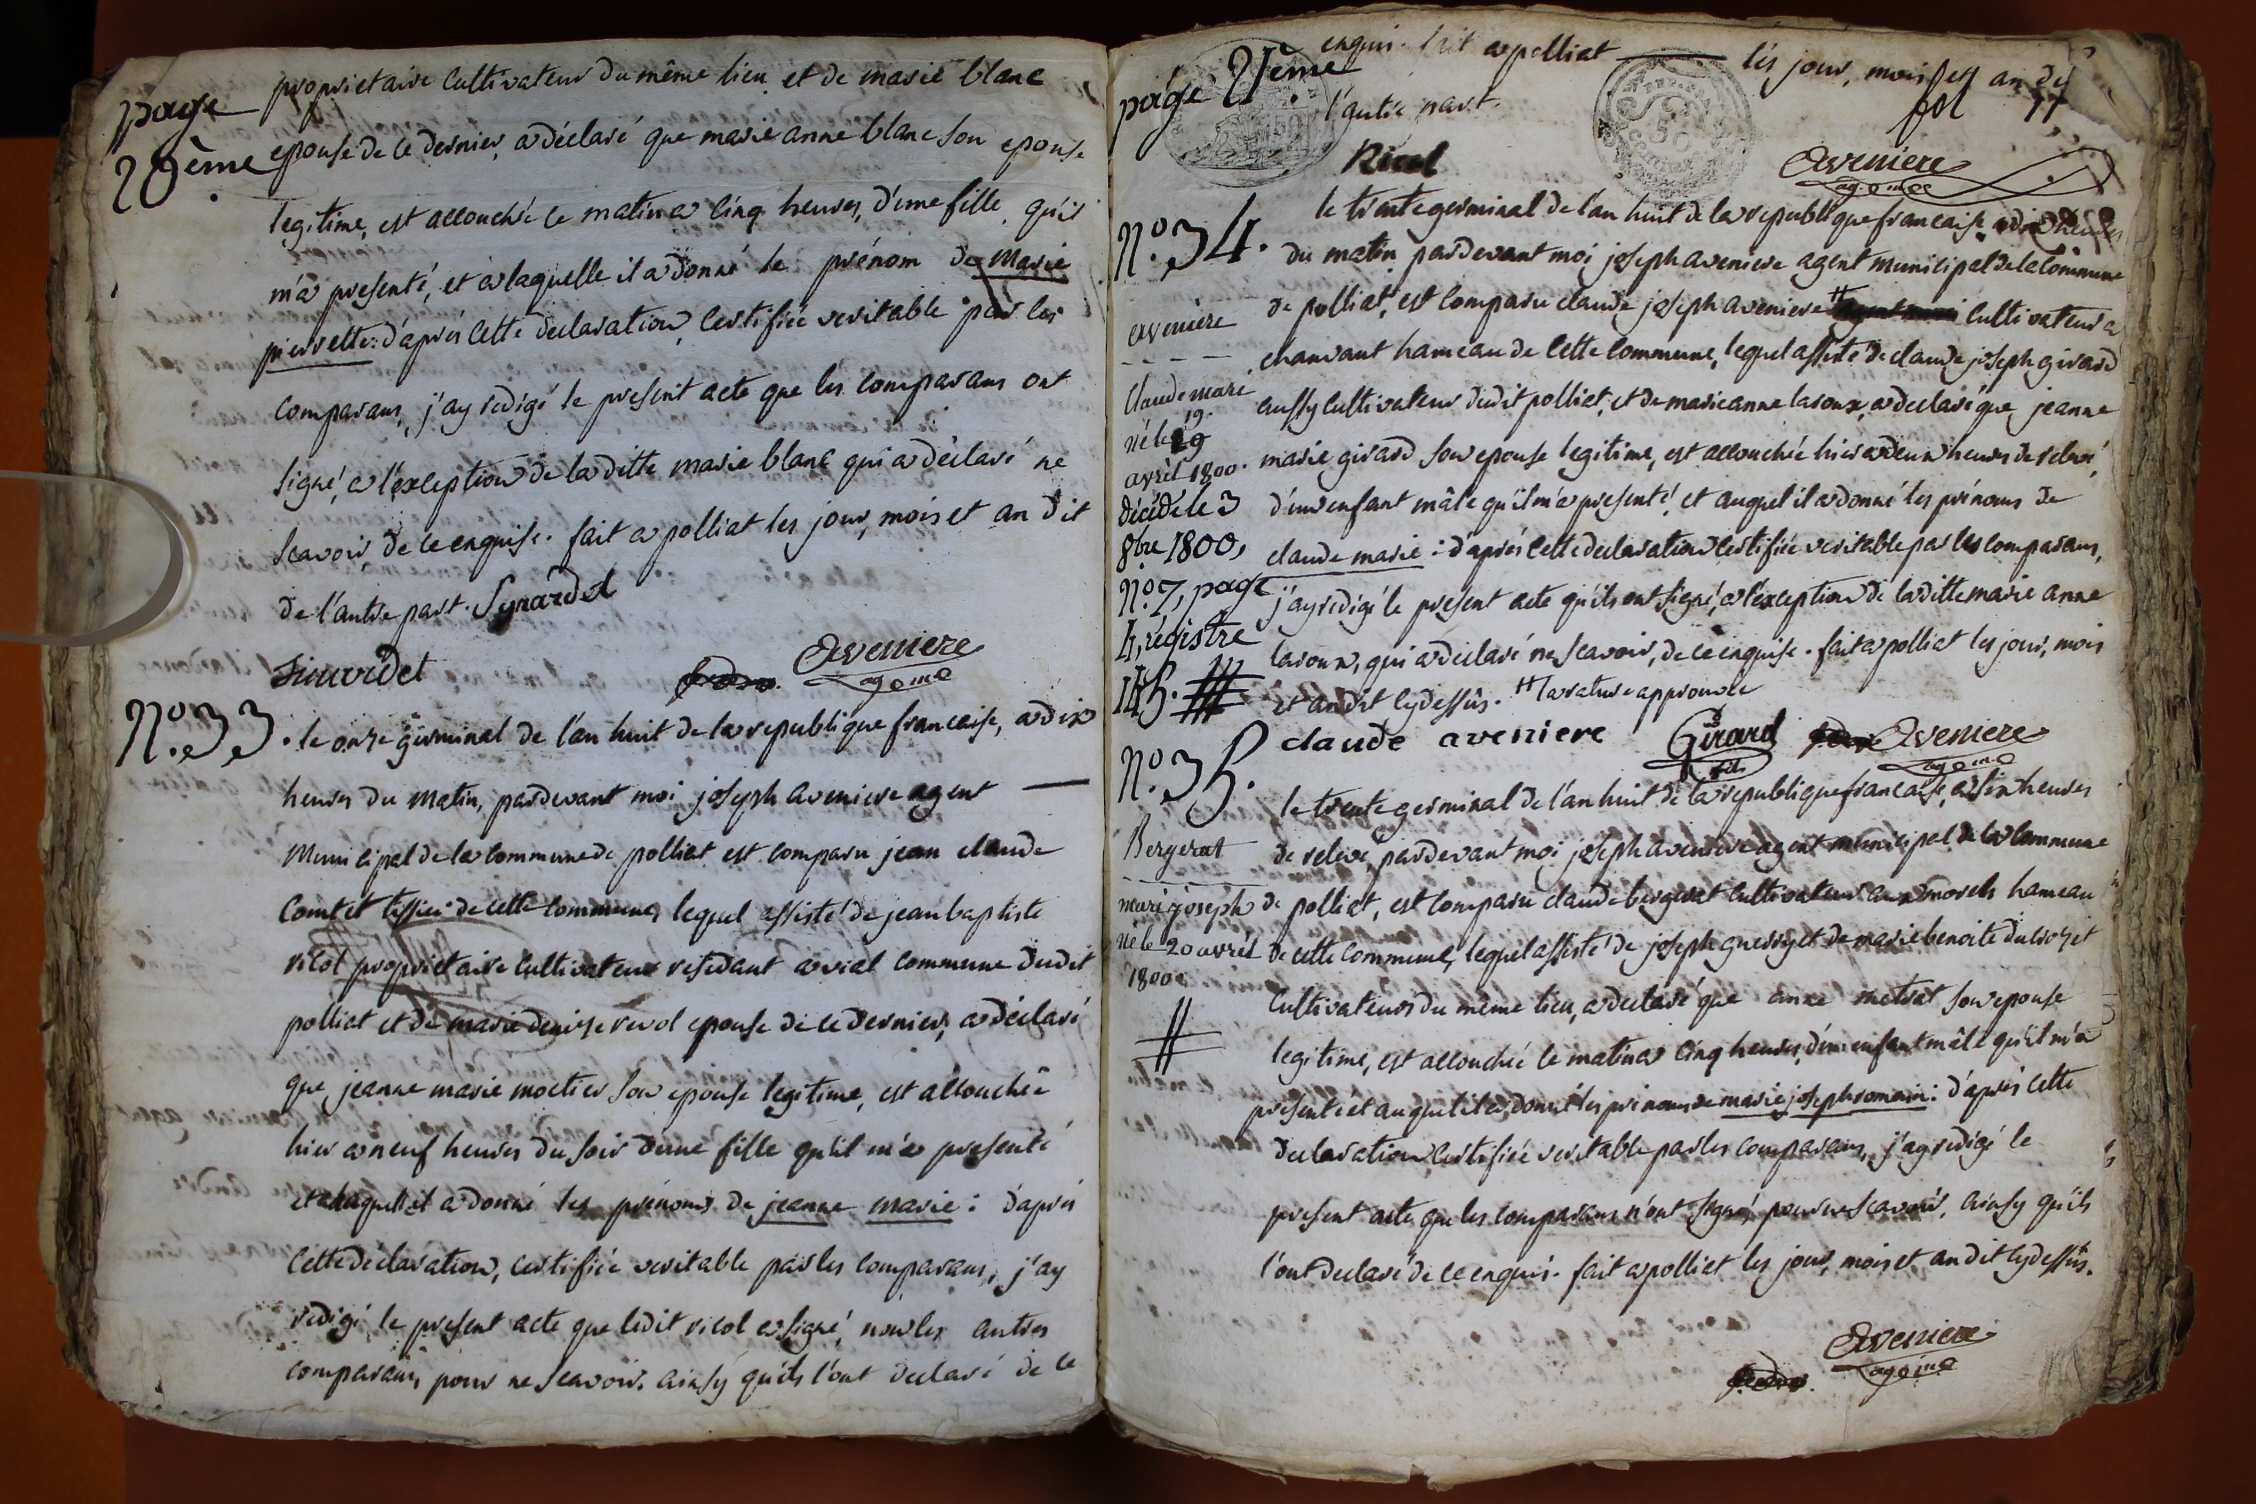 page
20ème
proprietaire cultivateur du même lieu et de marie blanc
epouse de ce dernier, a déclaré que marie anne blanc son epouse
legitime, est accouchée ce matin a cinq heures, d'une fille qu'il
m'a presenté, et a laquelle il a donné le prénom de marie
pierrette: d'après cette declaration, certifiée veritable par les
comparans, j'ay redigé le present acte que les comparans ont
signé, a l'exception de la ditte marie blanc qui a déclaré ne
scavoir, de ce enquise. fait a polliat les jour, mois et an dit
de l'autre part.
aveniere
ag. m.
N.º 33.
le onze germinal de l'an huit de la republique francaise, a dix
heures du matin, pardevant moi joseph aveniere agent
municipal de la commune de polliat est comparu jean claude
comtet tissier de cette commune, lequel assisté de jean baptiste
ricol proprietaire cultivateur residant a vial commune dudit
polliat et de marie denise revol epouse de ce dernier, a déclaré
que jeanne marie moctier son epouse legitime, est accouchée
hier a neuf heures du soir d'une fille qu'il m'a presenté
et a laquelle il a donné les prénoms de jeanne marie: d'après
cette declaration, certifiée veritable par les comparans, j'ay
redigé le present acte que ledit ricol a signé, non les autres
comparans, pour ne scavoir, ainsy qu'ils l'ont declaré de ce
page 21ème
enquis. fait a polliat les jour, mois et an dit
l'autre part.
fol 11
Ricol
aveniere
ag. m.
N.º 34.
le trente germinal de l'an huit de la republique francaise, a dix heures
du matin, pardevant moi joseph aveniere agent municipal de la commune
de polliat, est comparu claude joseph aveniere cultivateur a
chanvant hameau de cette commune, lequel assisté de claude joseph girard
aussy cultivateur dudit polliat, et de marie anne laroux, a declaré que jeanne
marie girard son epouse legitime, est accouchée hier a deux heures de relevé,
d'un enfant mâle qu'il m'a presenté, et auquel il a donné les prénoms de
claude marie: d'après cette declaration certifiée veritable par les comparans,
j'ay redigé le present acte qu'ils ont signé, a l'exception de la ditte marie anne
laroux, qui a declaré ne scavoir, de ce enquise. fait a polliat les jour, mois
et an dit cydessus. la rature approuvée
aveniere
claude marie
19.
né le 19
avril 1800.
décédé le 3
8bre 1800,
nº. 7, page
4, régistre
claude aveniere Girard
fils
aveniere
ag. m.
N.º 35.
le trente germinal de l'an huit de la republique francaise, a six heures
de relevé, pardevant moi joseph aveniere agent municipal de la commune
de polliat, est comparu claude bergerat cultivateur aux morels hameau
de cette commune, lequel assisté de joseph guerry et de marie benoite
cultivateurs du même lieu, a declaré que anne metrat son epouse
legitime, est accouchée ce matin a cinq heures, d'un enfant mâle qu'il m'a
presenté et auquel il a donné les prénoms de marie joseph romain: d'après cette
declaration certifiée veritable par les comparans, j'ay redigé le
present acte que les comparans n'ont signé, pour ne scavoir, ainsy qu'ils
l'ont declaré de ce enquis. fait a polliat les jour, mois et an dit cydessus.
Bergerat
marie joseph
né le 20 avril
1800.
aveniere
ag. m.